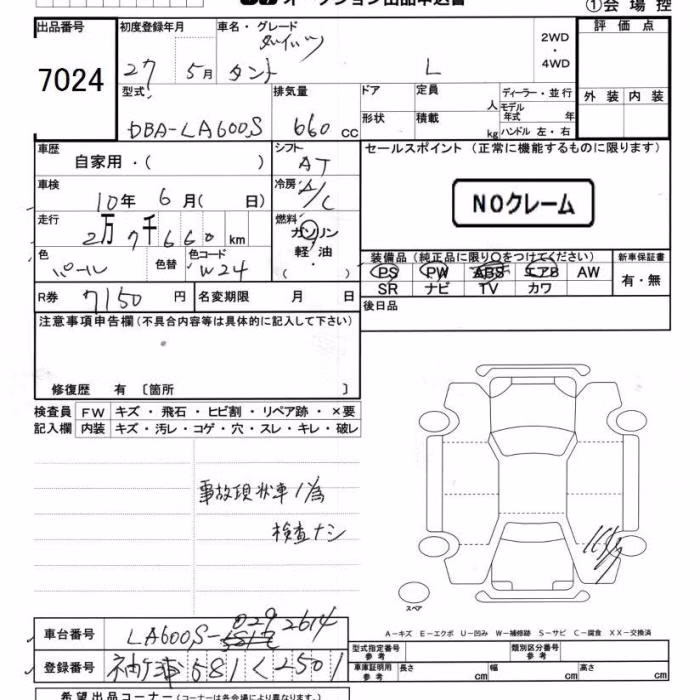 オークション出品申込書
①会場控
出品番号 7024
初度登録年月 27 5月
車名・グレード ダイハツ タント L
2WD・4WD
評価点
外装 内装
型式 DBA-LA600S
排気量 660 cc
ドア 形状
定員 人
積載 kg
ディーラー・並行
モデル年式 年
ハンドル 左・右
車歴 自家用・( )
シフト AT
セールスポイント（正常に機能するものに限ります）
NOクレーム
車検 10年 6月( 日)
冷房 A/C
走行 2万7千660 km
燃料 ガソリン 軽油・( )
装備品（純正品に限り○をつけてください）
PS PW ABS エアB AW
SR ナビ TV カワ
新車保証書 有・無
色 パール 色替 色コード W24
R券 7150 円
名変期限 月 日
後日品
注意事項申告欄（不具合内容等は具体的に記入して下さい）
修復歴 有 〔箇所 〕
検査員記入欄
FW キズ・飛石・ヒビ割・リペア跡・×要
内装 キズ・汚レ・コゲ・穴・スレ・キレ・破レ
事故現状車ノ為
検査ナシ
スペア
A-キズ E-エクボ U-凹み W-補修跡 S-サビ C-腐食 XX-交換済
車台番号 LA600S-0292614
登録番号 袖ケ浦 581 く 2501
型式指定番号 参考
類別区分番号 参考
車庫証明用 参考 長さ cm 幅 cm 高さ cm
希望出品コーナー（コーナーは各会場により異なります。）